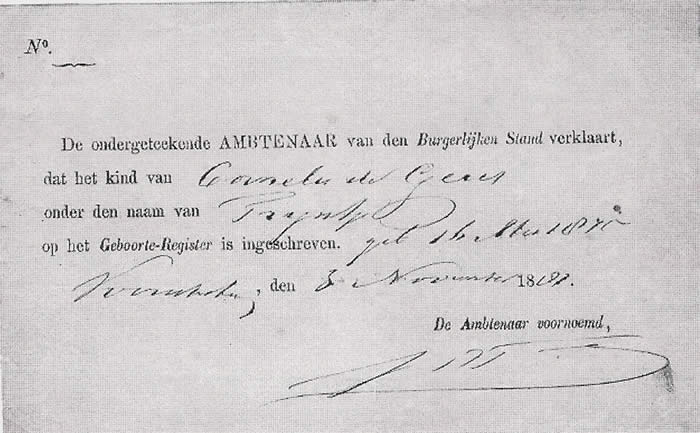 No.
De ondergeteekende AMBTENAAR van den Burgerlijken Stand verklaart,
dat het kind van Cornelis de Geus
onder den naam van Tryntje
op het Geboorte-Register is ingeschreven. geb 16 1870
, den 3 November 18
De Ambtenaar voornoemd,